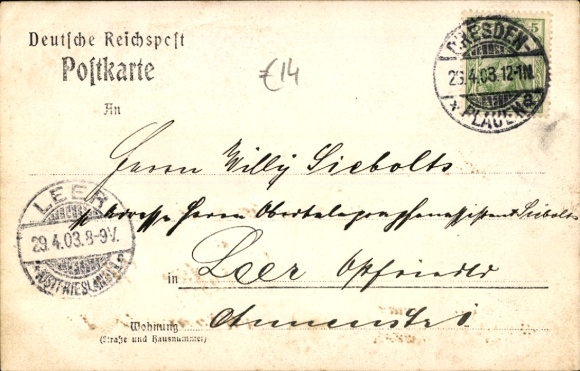 Deutsche Reichspost
Postkarte
€14
5
DRESDEN-
26.4.03.12-1N.
* PLAUEN a
An
Herrn Willy Siebolts
Adresse Herrn Obertelegraphenassistent Siebolts
LEER
29.4.03.8-9V.
*(OSTFRIESLAND) a
in Leer Ostfriesld
Wohnung
(Straße und Hausnummer)